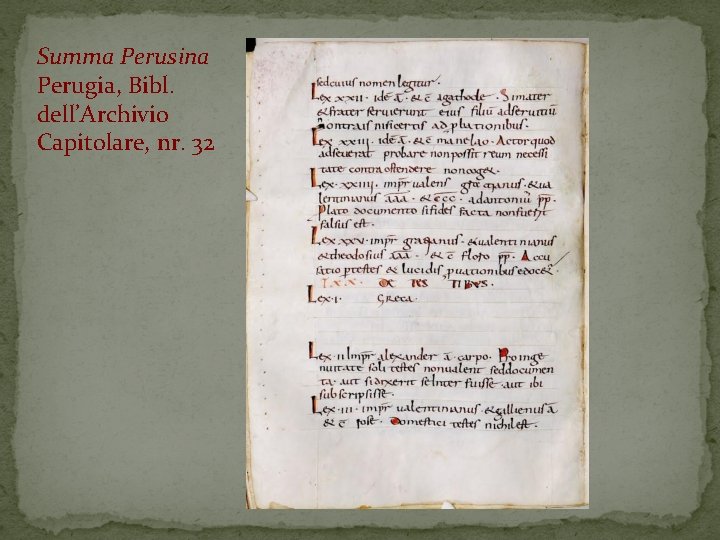 Summa Perusina
Perugia, Bibl.
dell'Archivio
Capitolare, nr. 32
sedcuius nomen legitur.
Lex xxII. idē ā. & c̄ agathocle. Simater
& frater servierunt eius filiū adservitiū
nontrais nisi certis ad pbationibus.
Lex xxIII. idē ā. & c̄ manelao. Actor quod
adseverat probare non possit reum necessi
tate contra ostendere non coger.
Lex. xxIIII. impr̄ valens gratianus. & va
lentinianus āāā. & c̄c̄c̄. ad antoniū pp̄.
Plato documento si fides facta non fuerit
falsus est.
Lex xxv. impr̄ gratianus. & valentinianus
& theodosius āāā. & c̄ floro pp̄. Accu
satio p testes & lucidis pvationibus edocer
De tes tibus.
Lex. I. Greca.
Lex. II Impr̄ alexander ā. carpo. Pro inge
nuitate soli testes non valent sed documen
ta. aut si dixerit se inter fuisse. aut ibi
subscripsisse.
Lex. III. impr̄ valentinianus. & gillienus ā
& c̄ rose. Domestici testes nichil est.